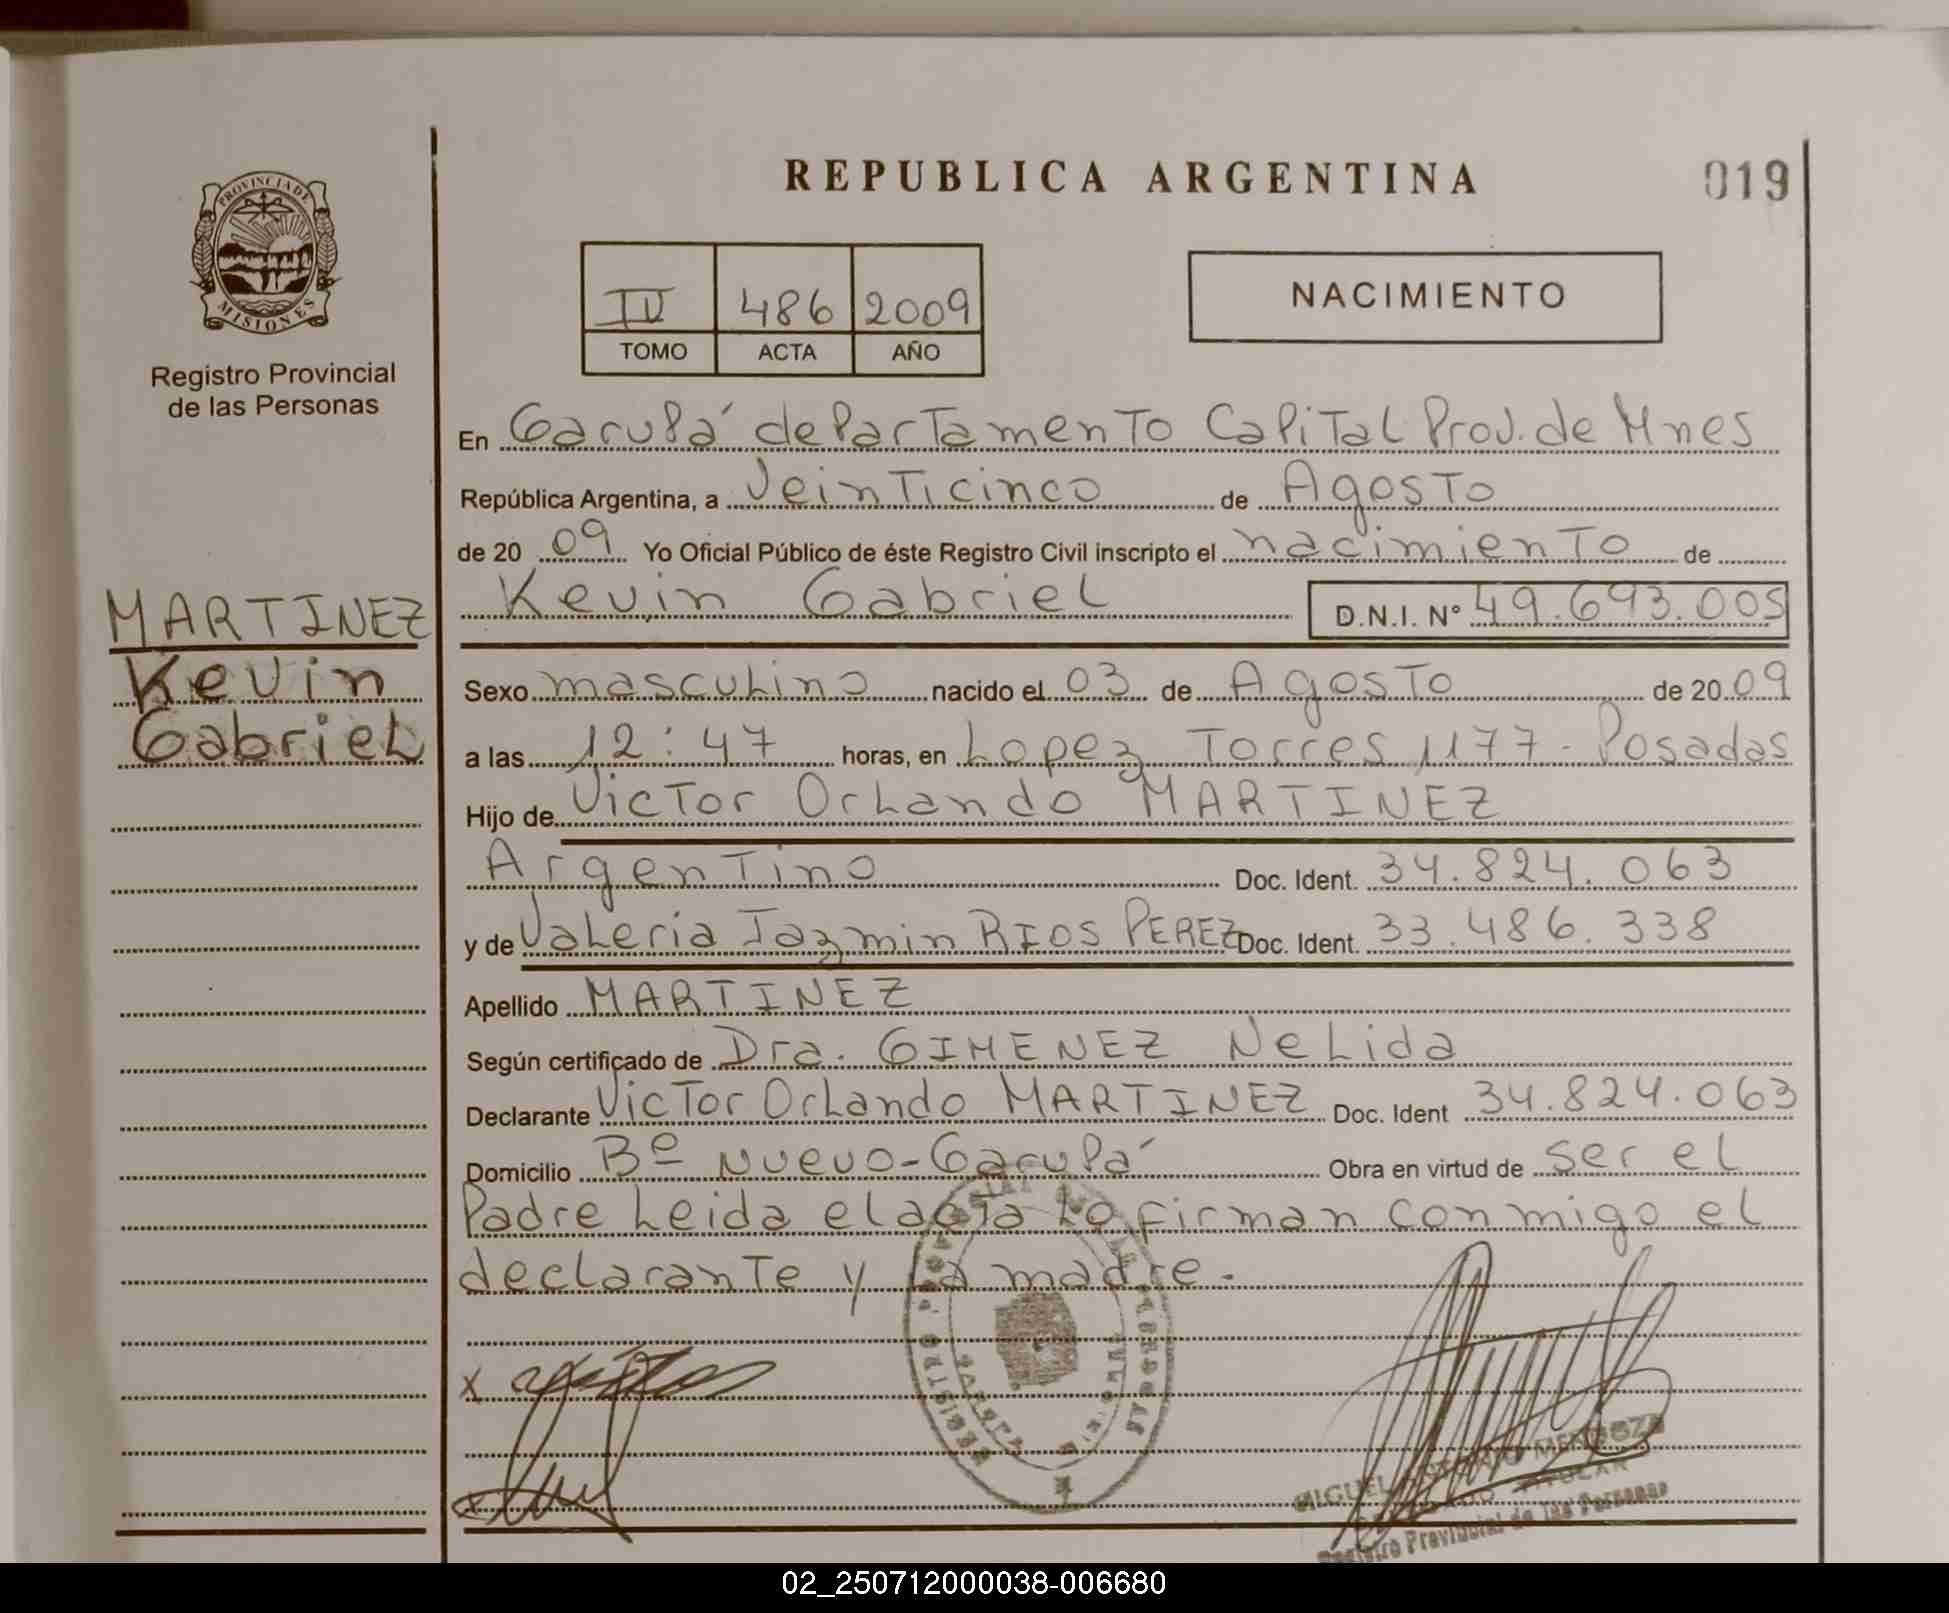 REPUBLICA ARGENTINA
019
PROVINCIA DE
MISIONES
Registro Provincial
de las Personas
IV 486 2009
TOMO ACTA AÑO
NACIMIENTO
MARTINEZ
Kevin
Gabriel
En Garupá departamento Capital Prov. de Mnes
República Argentina, a Veinticinco de Agosto
de 20 09 Yo Oficial Público de éste Registro Civil inscripto el nacimiento de
Kevin Gabriel D.N.I. Nº 49.693.005
Sexo masculino nacido el 03 de Agosto de 20 09
a las 12:47 horas, en Lopez Torres 1177 - Posadas
Hijo de Victor Orlando MARTINEZ
Argentino Doc. Ident. 34.824.063
y de Valeria Jazmin RIOS PEREZ Doc. Ident. 33.486.338
Apellido MARTINEZ
Según certificado de Dra. GIMENEZ Nelida
Declarante Victor Orlando MARTINEZ Doc. Ident 34.824.063
Domicilio Bº Nuevo - Garupá Obra en virtud de ser el
Padre Leida el acta lo firman conmigo el
declarante y la madre.
MIGUEL ANTONIO MENDOZA
Registro Provincial de las Personas
02_250712000038-006680